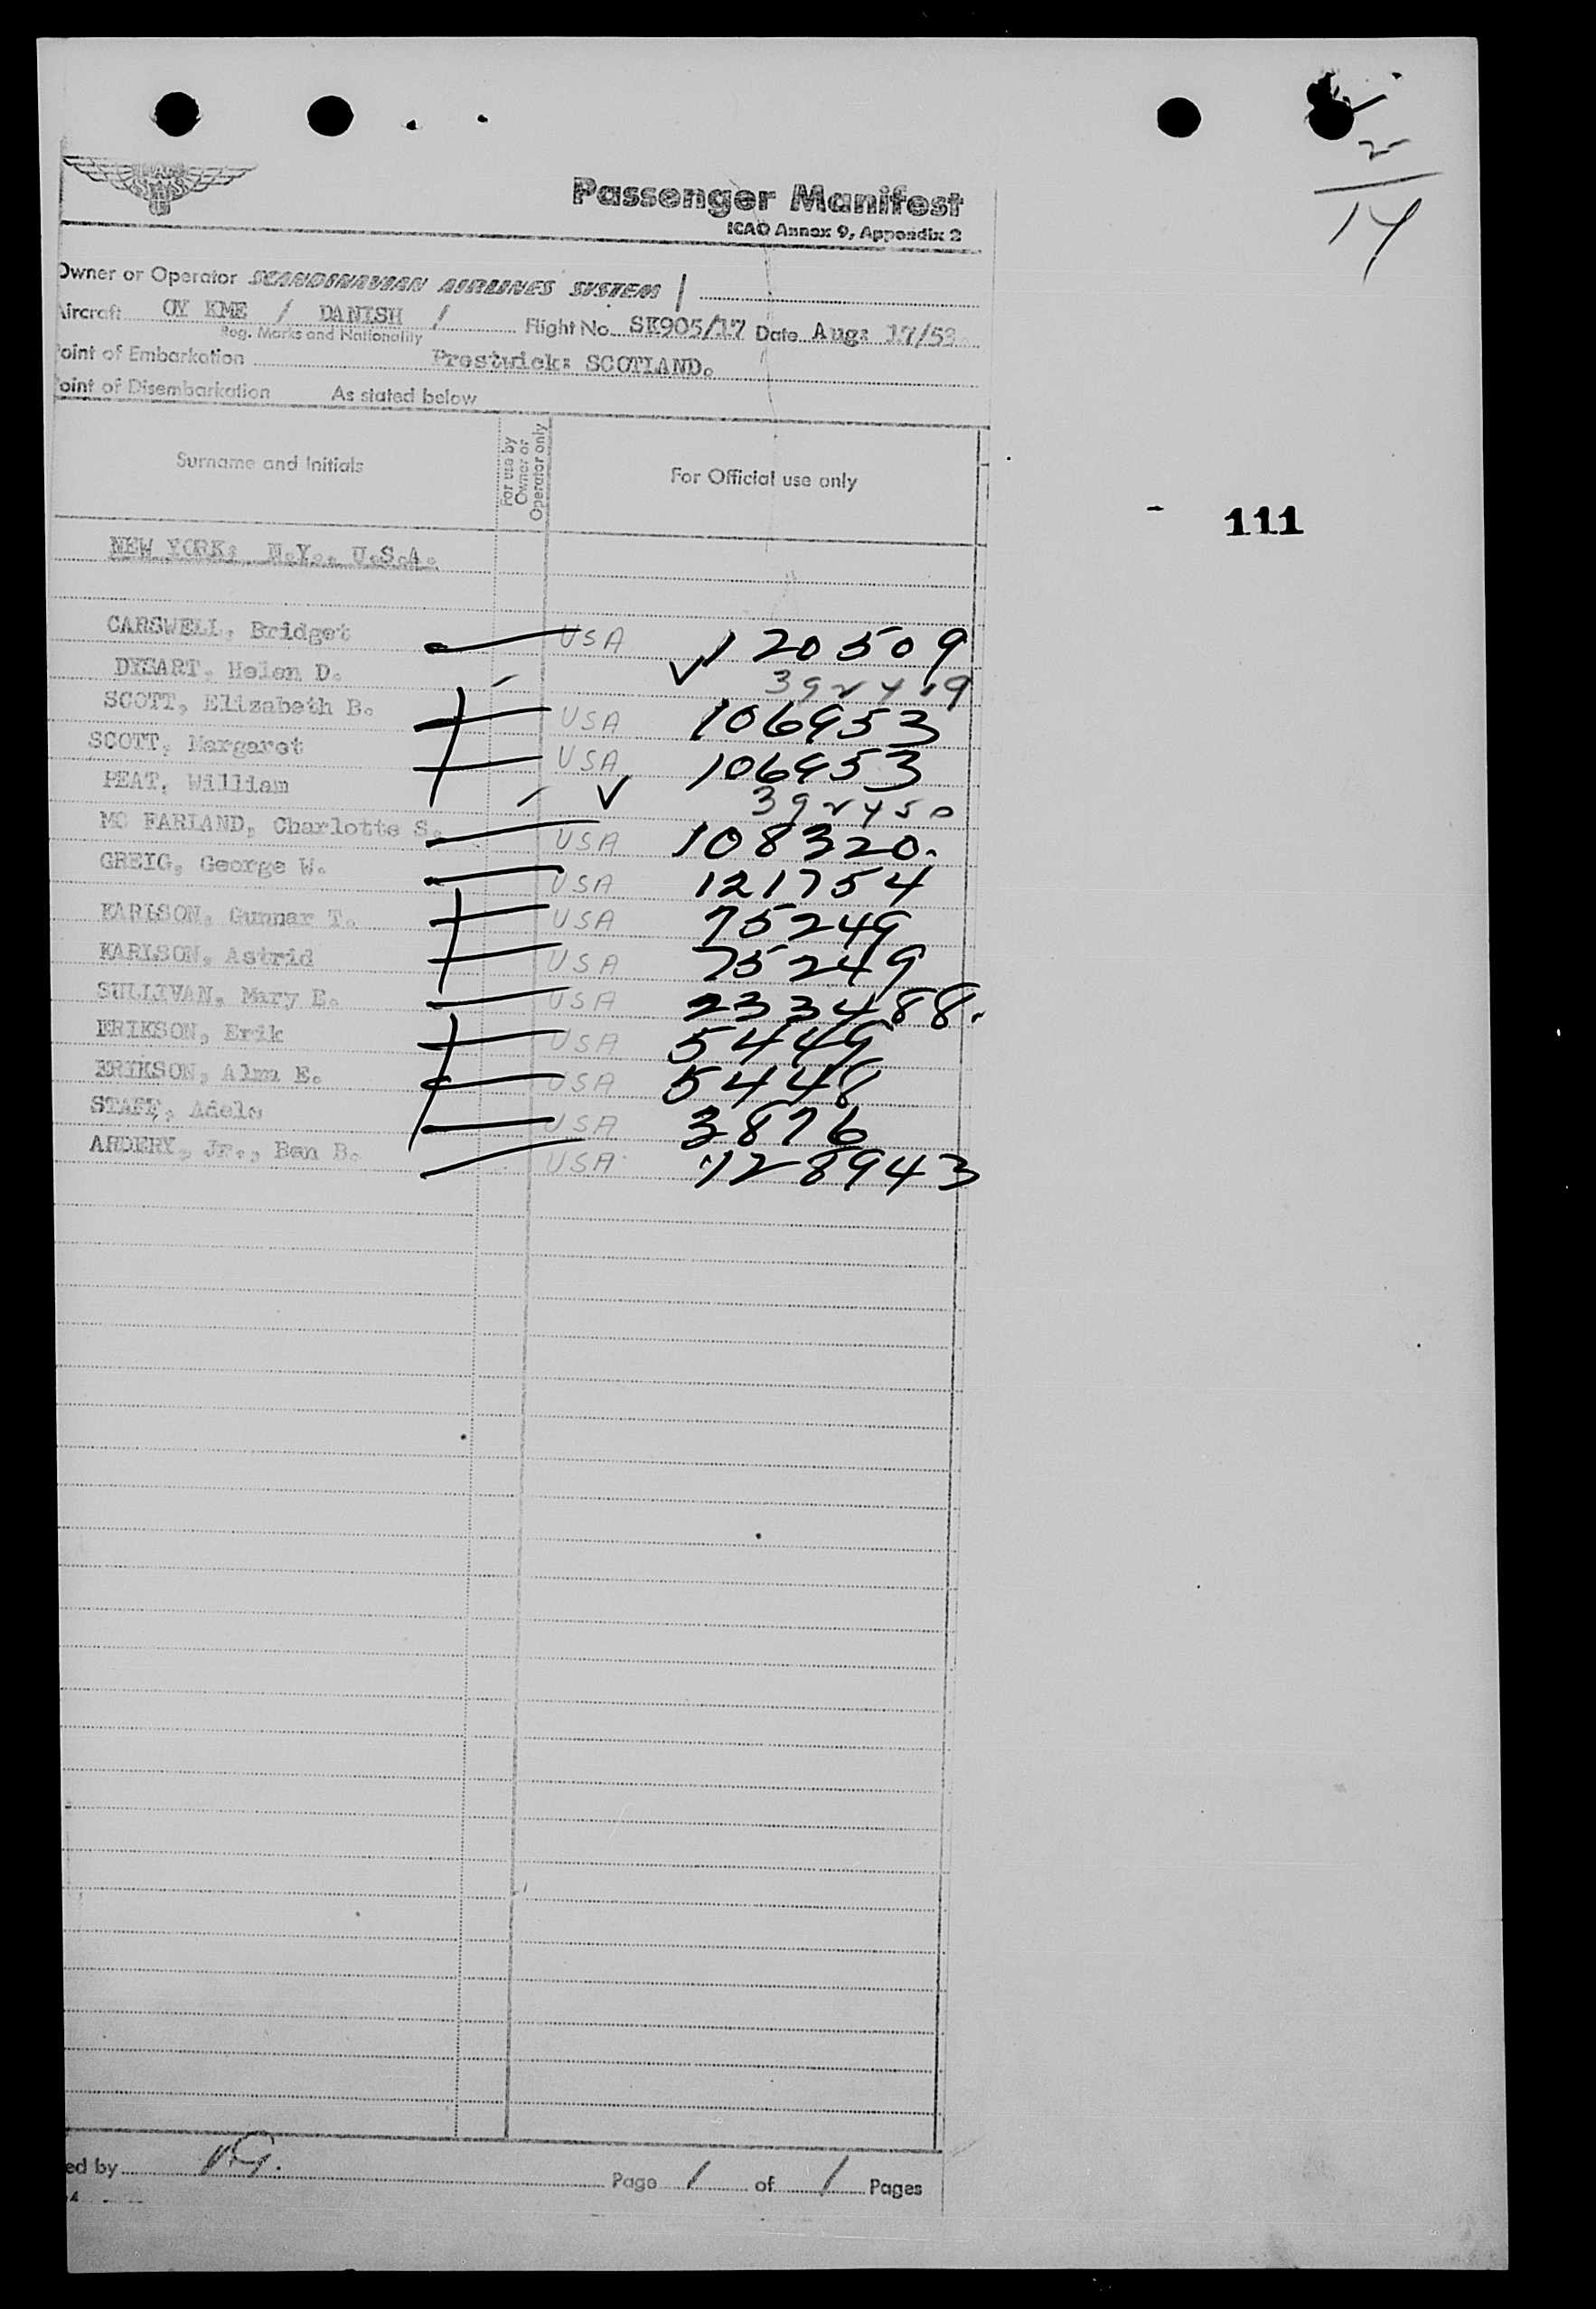 2
14
Passenger Manifest
ICAO Annex 9, Appendix 2
Owner or Operator SCANDINAVIAN AIRLINES SYSTEM
Aircraft OY KME / DANISH / Flight No. SK905/17 Date Aug: 17/53
Reg. Marks and Nationality
Point of Embarkation Prestwick: SCOTLAND.
Point of Disembarkation As stated below
Surname and Initials For use by Owner or Operator only For Official use only
111
NEW YORK: N.Y., U.S.A.
CARSWELL, Bridget USA 120509
DYSART, Helen D.
SCOTT, Elizabeth B. USA 106953
SCOTT, Margaret USA 106953
PEAT, William 392450
MC FARLAND, Charlotte S. USA 108320.
GREIG, George W. USA 121754
KARLSON, Gunnar T. USA 75249
KARLSON, Astrid USA 75249
SULLIVAN, Mary E. USA 233488.
ERIKSON, Erik USA 5449
ERIKSON, Alma E. USA 5448
STAFF, Adele USA 3876
ARDERY, Jr., Ben B. USA 128943
ed by
Page 1 of 1 Pages